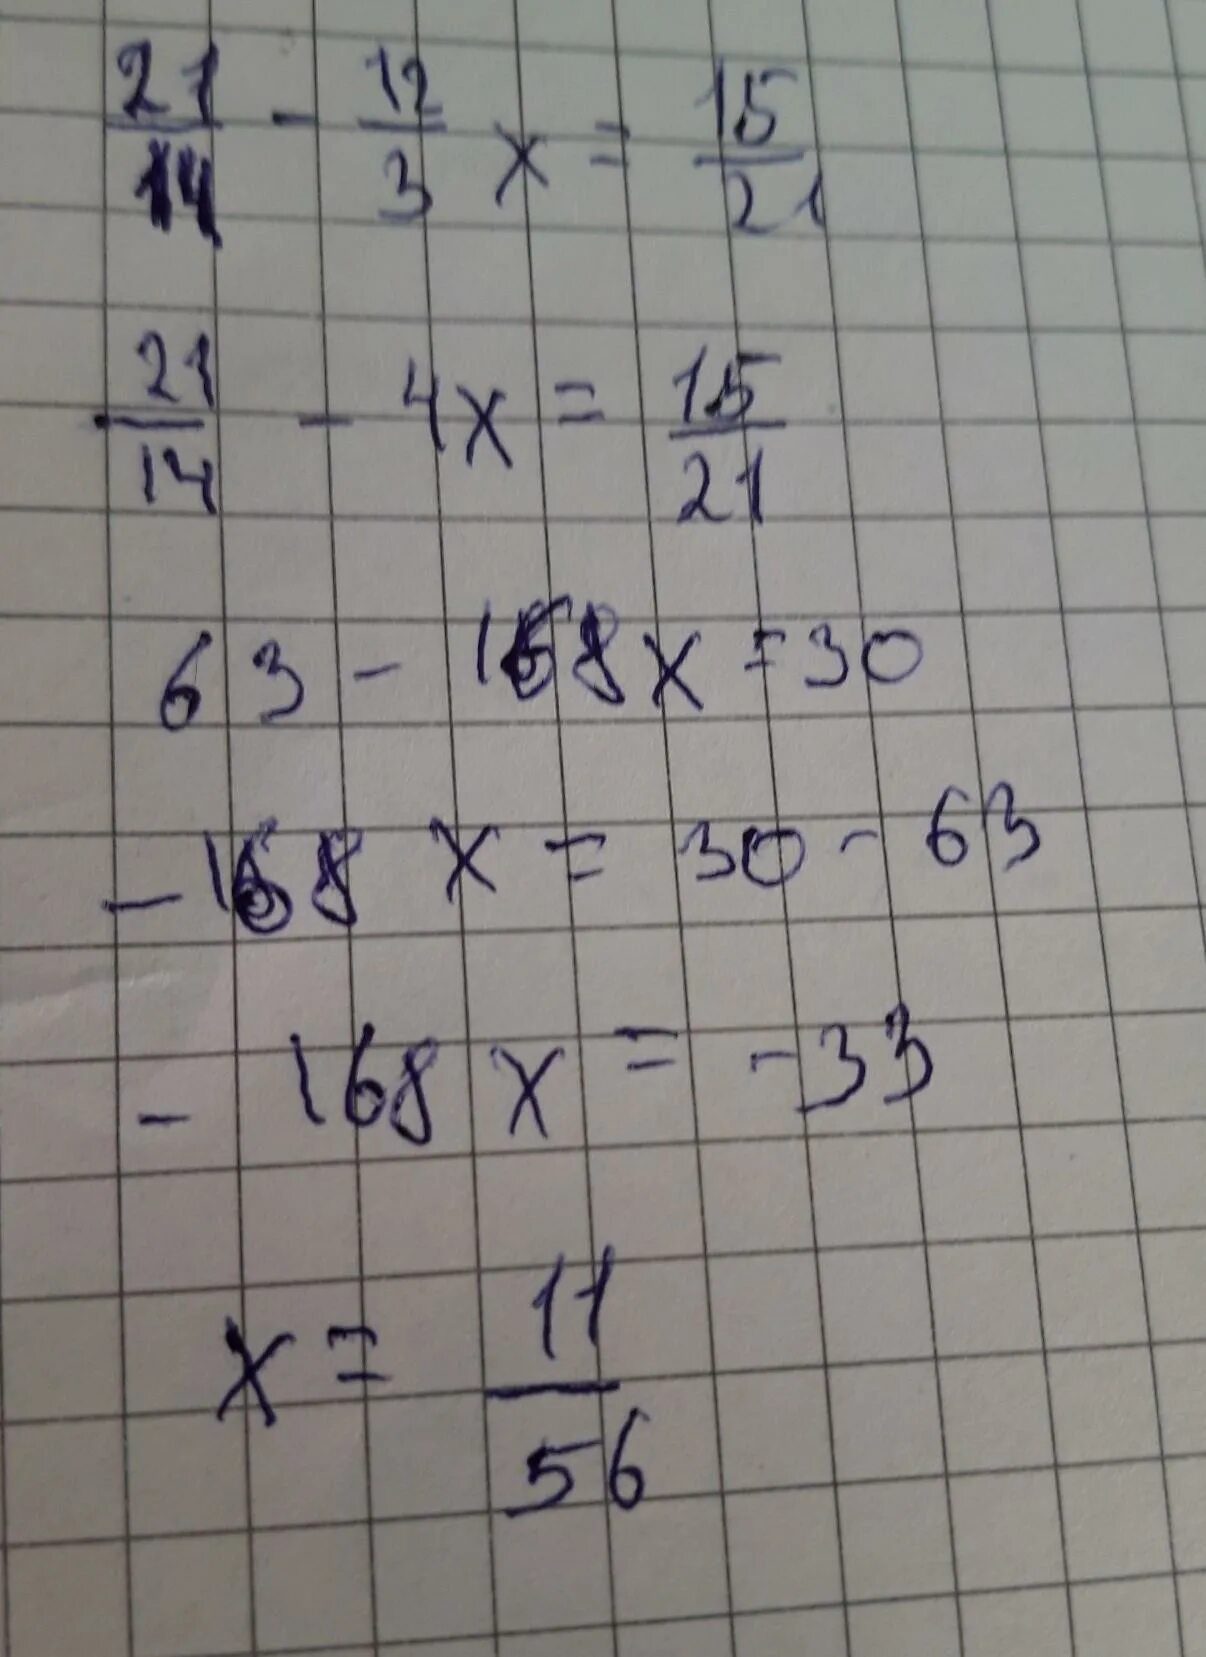 21/14 - 12/3 x = 15/21
21/14 - 4x = 15/21
63 - 168x = 30
-168 x = 30 - 63
- 168 x = -33
x = 11/56